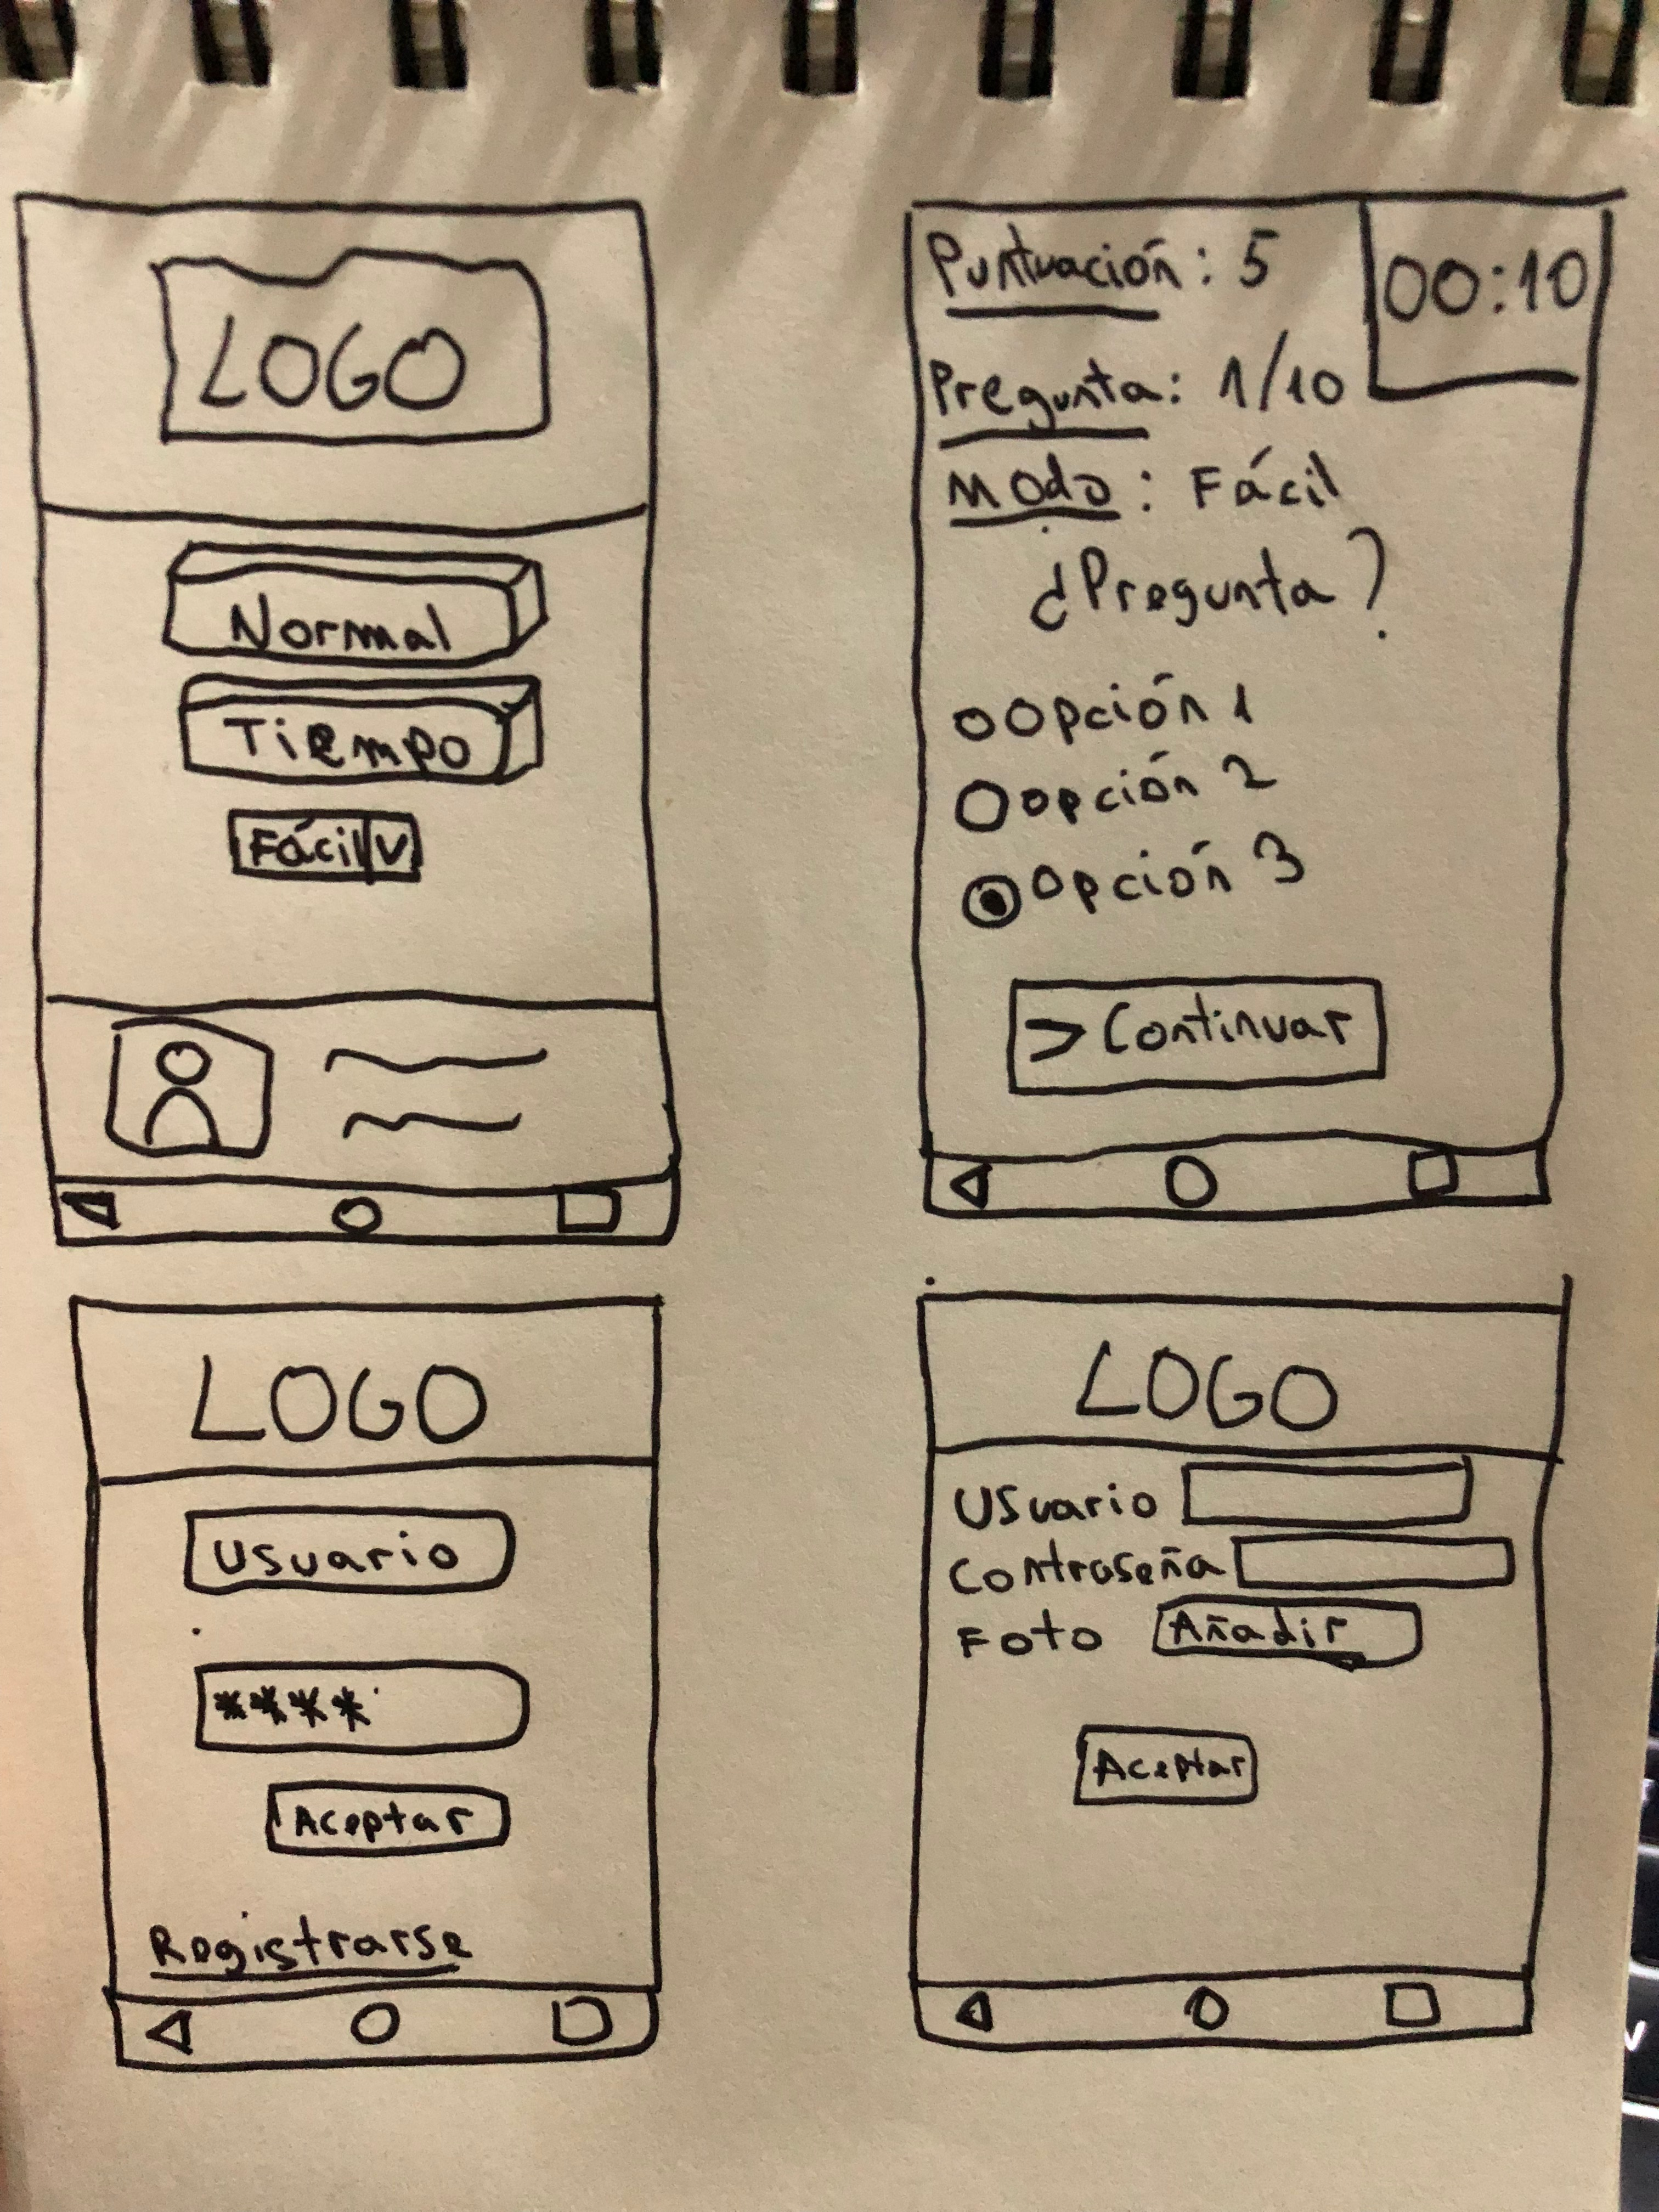 LOGO
Normal
Tiempo
Fácil V
Puntuación: 5
00:10
Pregunta: 1/10
Modo: Fácil
¿Pregunta?
Opción 1
opción 2
Opción 3
> Continuar
LOGO
Usuario
****
Aceptar
Registrarse
LOGO
Usuario
Contraseña
Foto Añadir
Aceptar